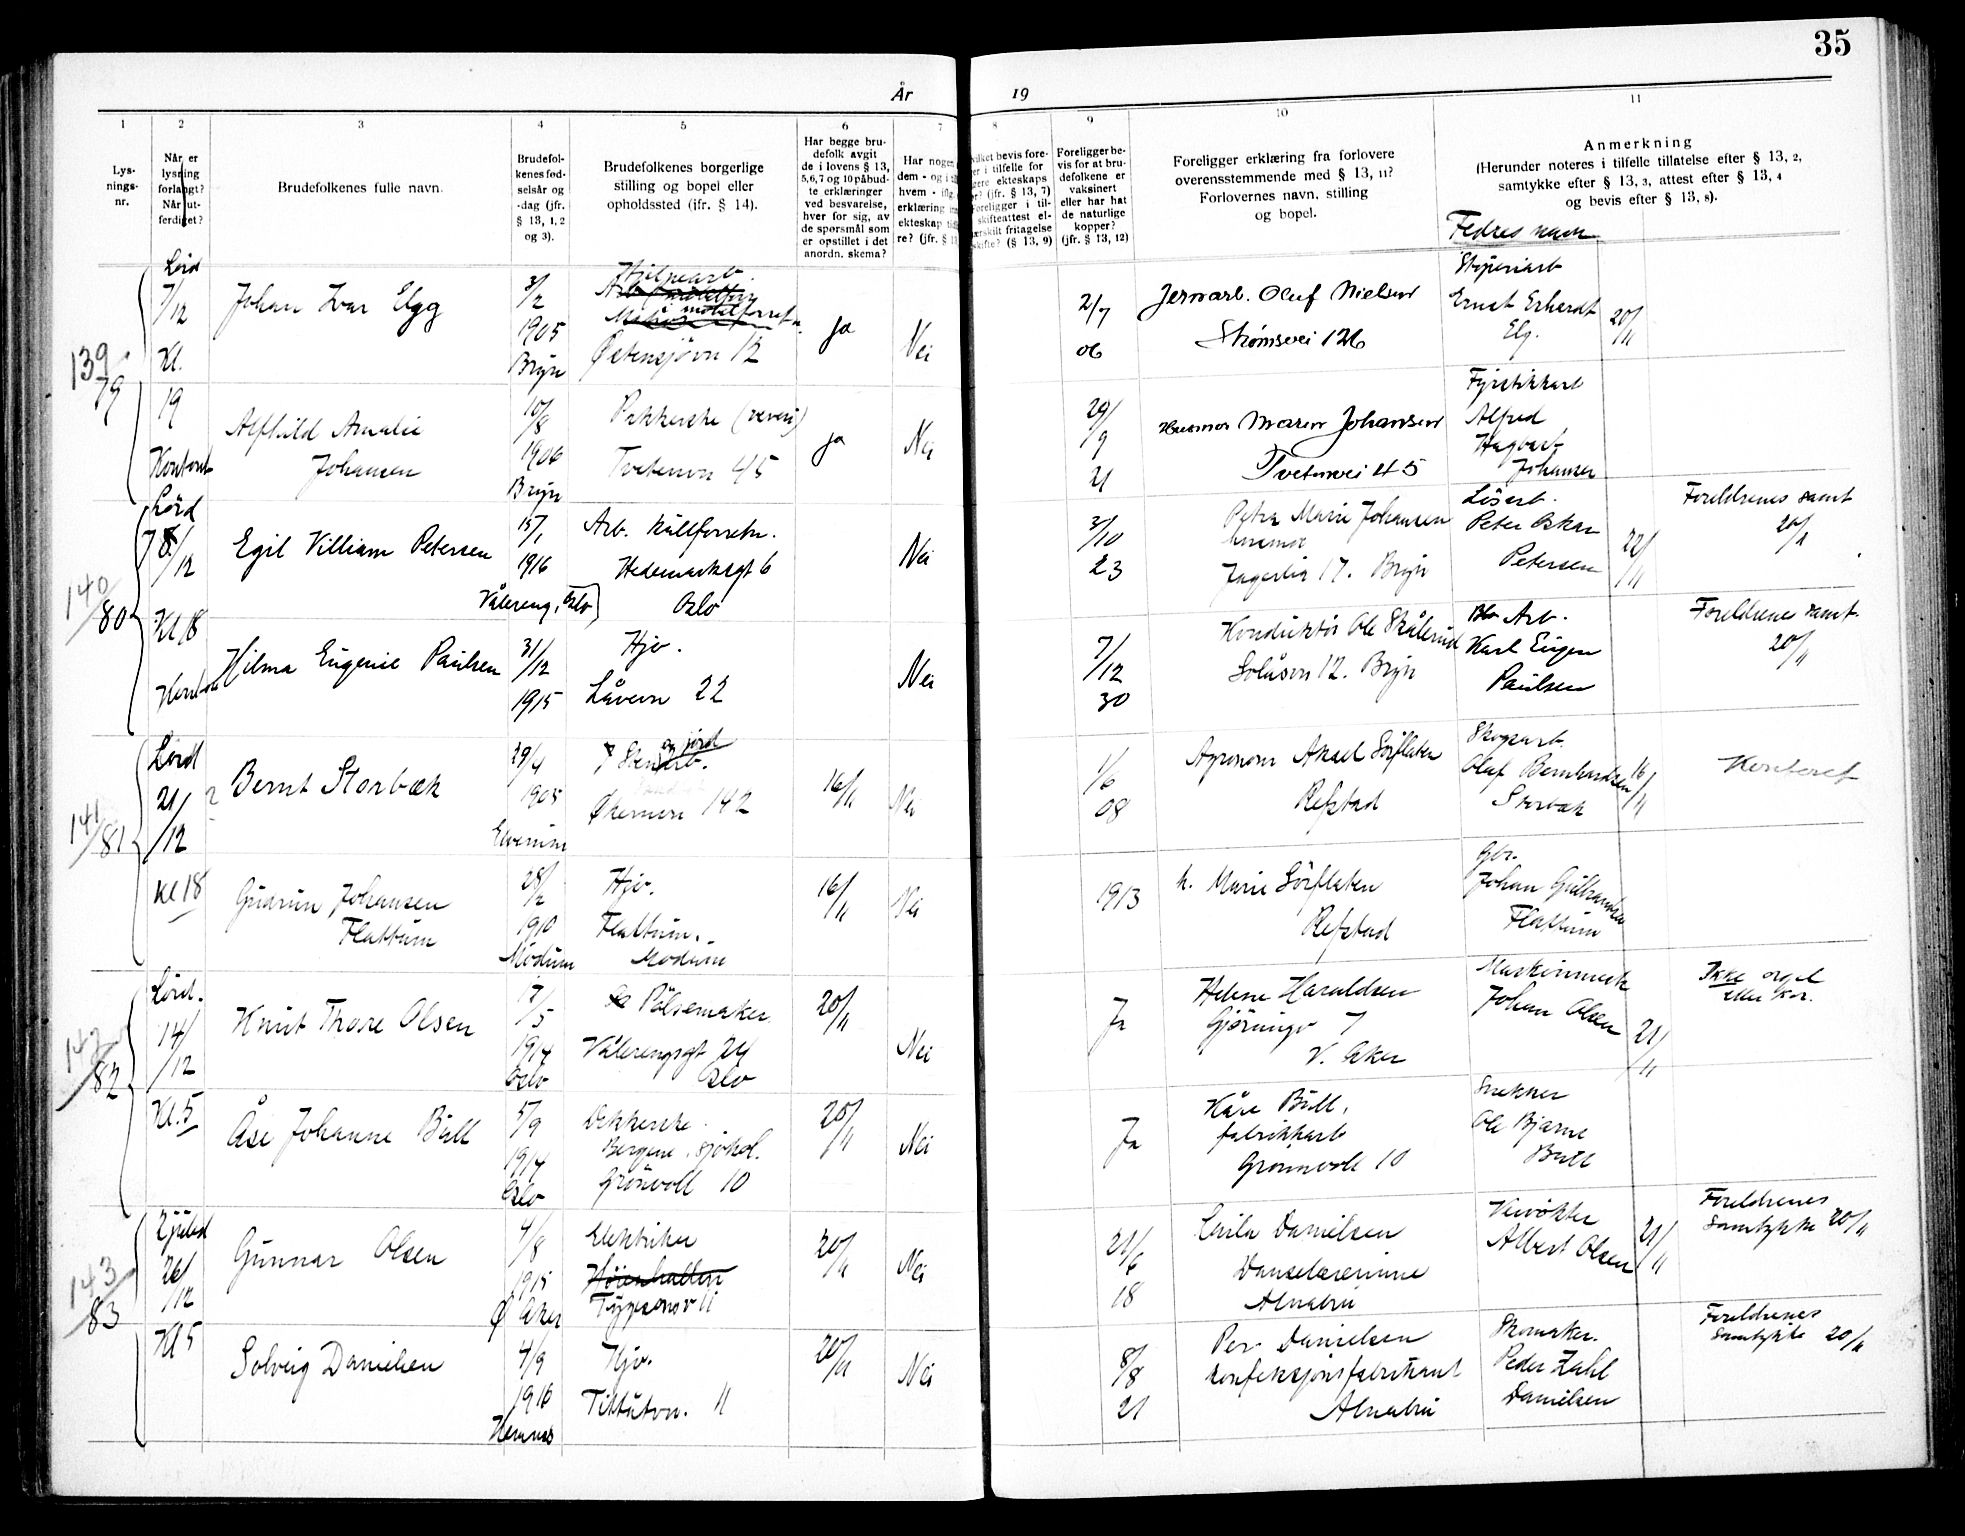 35
År 19
1 2 3 4 5 6 7 8 9 10 11
Lys-
nings-
nr.
Når er
lysning
forlangt?
Når ut-
ferdiget?
Brudefolkenes fulle navn.
Brudefol-
kenes fød-
selsår og
-dag (jfr.
§ 13, 1, 2
og 3).
Brudefolkenes borgerlige
stilling og bopel eller
opholdssted (ifr. § 14).
Har begge bru-
defolk avgit
de i lovens § 13,
5,6,7 og 10 påbud-
te erklæringer
ved besvarelse,
hver for sig, av
de spørsmål som
er opstillet i det
anordn. skema?
Har nogen
dem - og i
hvem -
erklæring
ekteskap
re? (jfr. §
bevis fore-
tilfelle for
ekteskaps
(jfr. § 13, 7)
i til-
skifteattest el-
fritagelse
(§ 13, 9)
Foreligger be-
vis for at bru-
defolkene er
vaksinert
eller har hat
de naturlige
kopper?
(jfr. § 13, 12)
Foreligger erklæring fra forlovere
overensstemmende med § 13, 11?
Forlovernes navn, stilling
og bopel.
Anmerkning
(Herunder noteres i tilfelle tillatelse efter § 13, 2,
samtykke efter § 13, 3, attest efter § 13, 4
og bevis efter § 13, 8).
Fedres navn
139/79
Lörd
7/12
Kl.
19
Kontoret
Johan Ivar Elgg
3/2
1905
Bryn
Hjelpearb.
Østensjøvn 12
ja
Nei
2/7
06
Jernarb. Oluf Nielsen
Strømsvei 126
Støperiarb
Ernst Erhardt
Elg.
20/11
Alfhild Amalie
Johansen
10/8
1906
Bryn
Pakkerske (veveri)
Tvetenvn 45
ja
Nei
29/9
21
Husmor Maren Johansen
Tvetenvei 45
Fyrstikkarb
Alfred
Hagbart
Johansen
140/80
Lörd
7/12
Kl 18
Egil Villiam Petersen
15/1
1916
Vålereng, Oslo
Arb. kullforretn.
Hedemarksgt 6
Oslo
Nei
3/10
23
Petra Marie Johansen
husmor
Jägerlia 17. Bryn
Lösarb.
Peter Oskar
Petersen
22/11
Foreldrenes samt
20/11
Hilma Eugenie Paulsen
31/12
1915
Hjv.
Låvevn 22
Nei
7/12
30
Konduktör Ole Skålerud
Solåsvn 12. Bryn
Arb.
Karl Eugen
Paulsen
Foreldrenes samt.
20/11
141/81
Lörd
21/12
Kl 18
?
Bernt Storbæk
29/4
1905
Elverum
og jord
Stenarb.
Økernvn 142
16/11
Nei
1/6
08
Agronom Aksel Sörflaten
Refstad
Skogsarb.
Olaf Bernhardsen
Storbæk
16/11
Kontoret
Gudrun Johansen
Flattum
28/2
1910
Modum
Hjv.
Flattum.
Modum
16/11
Nei
1913
h. Marie Sörflaten
Refstad
Gbr.
Johan Gulbrandsen
Flattum
142/82
Lörd.
14/12
Kl. 5
Knut Thore Olsen
17/5
1914
Oslo
Pölsemaker
Vålerengsgt 24
Oslo
20/11
Nei
Ja
Helene Haraldsen
7
V. Aker
Maskinmest
Johan Olsen
21/11
Ikke orgel
eller kor.
Åse Johanne Bull
5/9
1914
Oslo
Dekkerske.
Bergene. sjokol.
Grönvoll 10
20/11
Nei
Ja
Kåre Bull,
fabrikkarb
Grönnvoll 10
Snekker
Ole Bjarne
Bull
143/83
2 juled
26/12
Kl 5
Gunnar Olsen
4/8
1915
Ø Aker
Elektriker
Høienhallvn
11
20/11
Nei
21/6
18
Laila Danielsen
Danselærerinne
Alnabru
Albert Olsen
21/11
Foreldrenes
Samtykke 20/11
Solveig Danielsen
4/9
1916
Hemnes
Hjv.
Tittutvn. 11
20/11
Nei
8/8
21
Per Danielsen
konfeksjonsfabrikant
Alnabru
Skomaker.
Peder Zahl
Danielsen
Foreldrenes
Samtykke 20/11